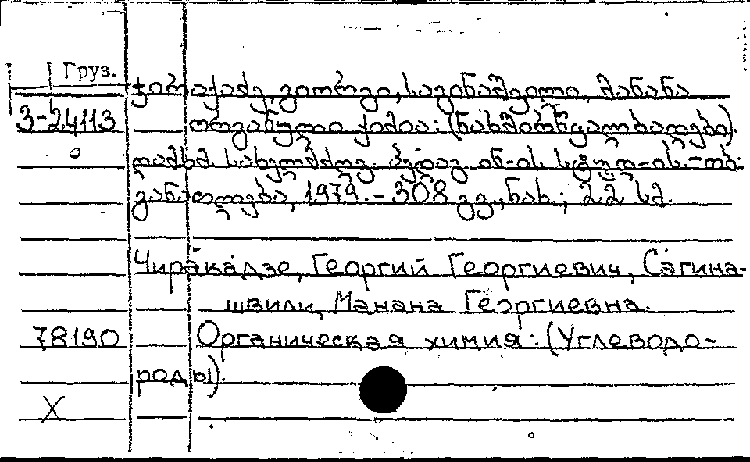 Груз.
ჭირაქაძე, გიორგი, საგინაშვილი, მანანა
3-24113 ორგანული ქიმია: (ნახშირწყალბადები).
დამხმ. სახელმძღვ. პედაგ. ინ-ის სტუდ-ის.-თბ.:
განათლება, 1979.- 308 გვ., ნახ.; 22 სმ.
Чиракадзе, Георгий Георгиевич, Сагина-
швили, Манана Георгиевна.
78190 Органическая химия: (Углеводо-
роды).
X